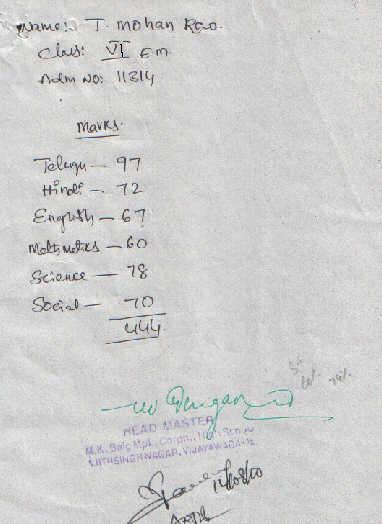 Name: T. Mohan Rao.
Class: VI E.M
Adm No: 11314
Marks.
Telugu — 97
Hindi — 72
English — 67
Mathmatics — 60
Science — 78
Social — 70
444
HEAD MASTER
M.K. Baig Mpl. Corpn. High School
AJITHSINGH NAGAR, VIJAYAWADA-15.